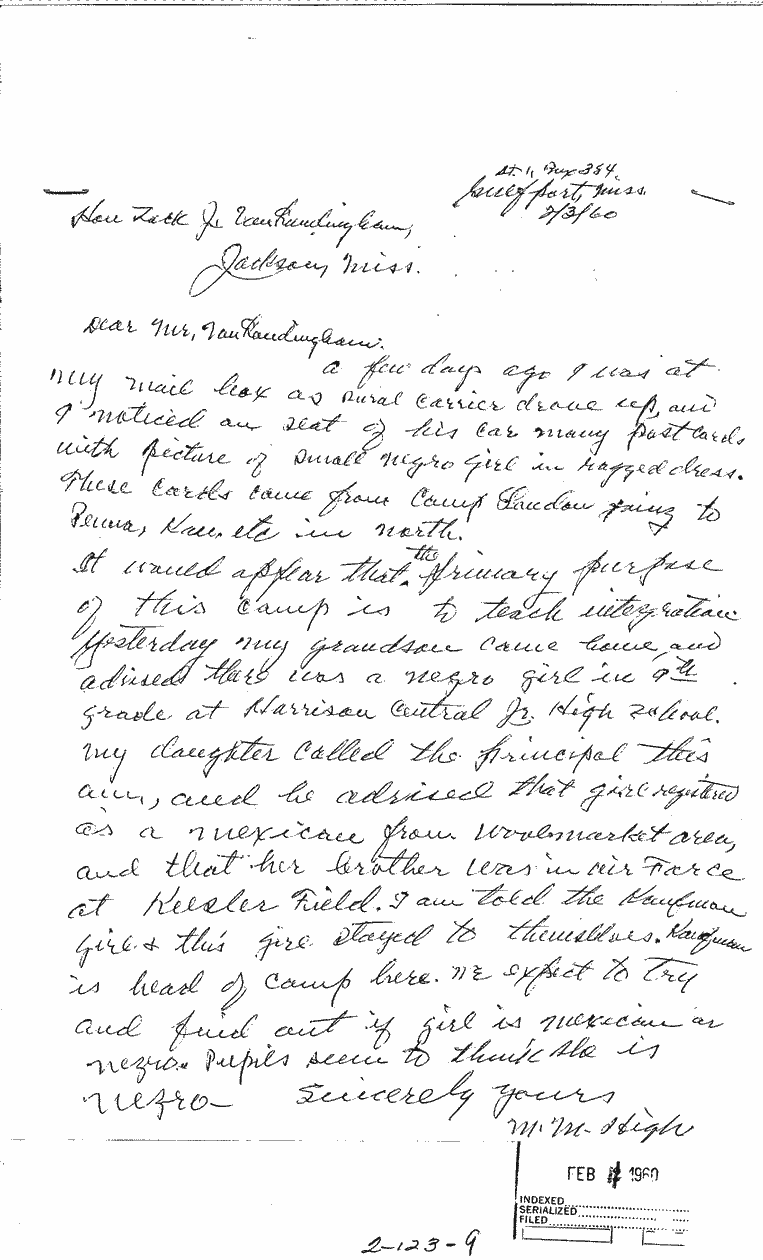 Rt. 1, Box 384,
Gulfport, Miss.
2/3/60
Hon Zack J. VanLandingham,
Jackson, Miss.
Dear Mr, VanLandingham.
A few days ago I was at
my mail box as rural carrier drove up, and
I noticed on seat of his car many post cards
with picture of small negro girl in ragged dress.
These cards came from Camp Landon going to
Penna, Kan. etc in north.
It would appear that the primary purpose
of this camp is to teach integration
Yesterday my grandson came home and
advised there was a negro girl in 9th
grade at Harrison Central Jr. High School.
My daughter called the principal this
am, and he advised that girl registered
as a mexican from Woolmarket area,
and that her brother was in air Force
at Keesler Field. I am told the Kaufman
girl & this girl stayed to themselves. Kaufman
is head of camp here. We expect to try
and find out if girl is mexican or
negro. Pupils seem to think she is
negro- Sincerely yours
M. M. High
FEB 1960
INDEXED
SERIALIZED
FILED
2-123-9